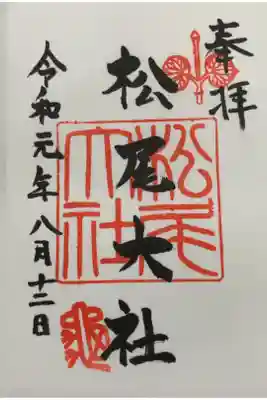 奉拝
松尾大社
松尾大社
令和元年八月十二日
龜